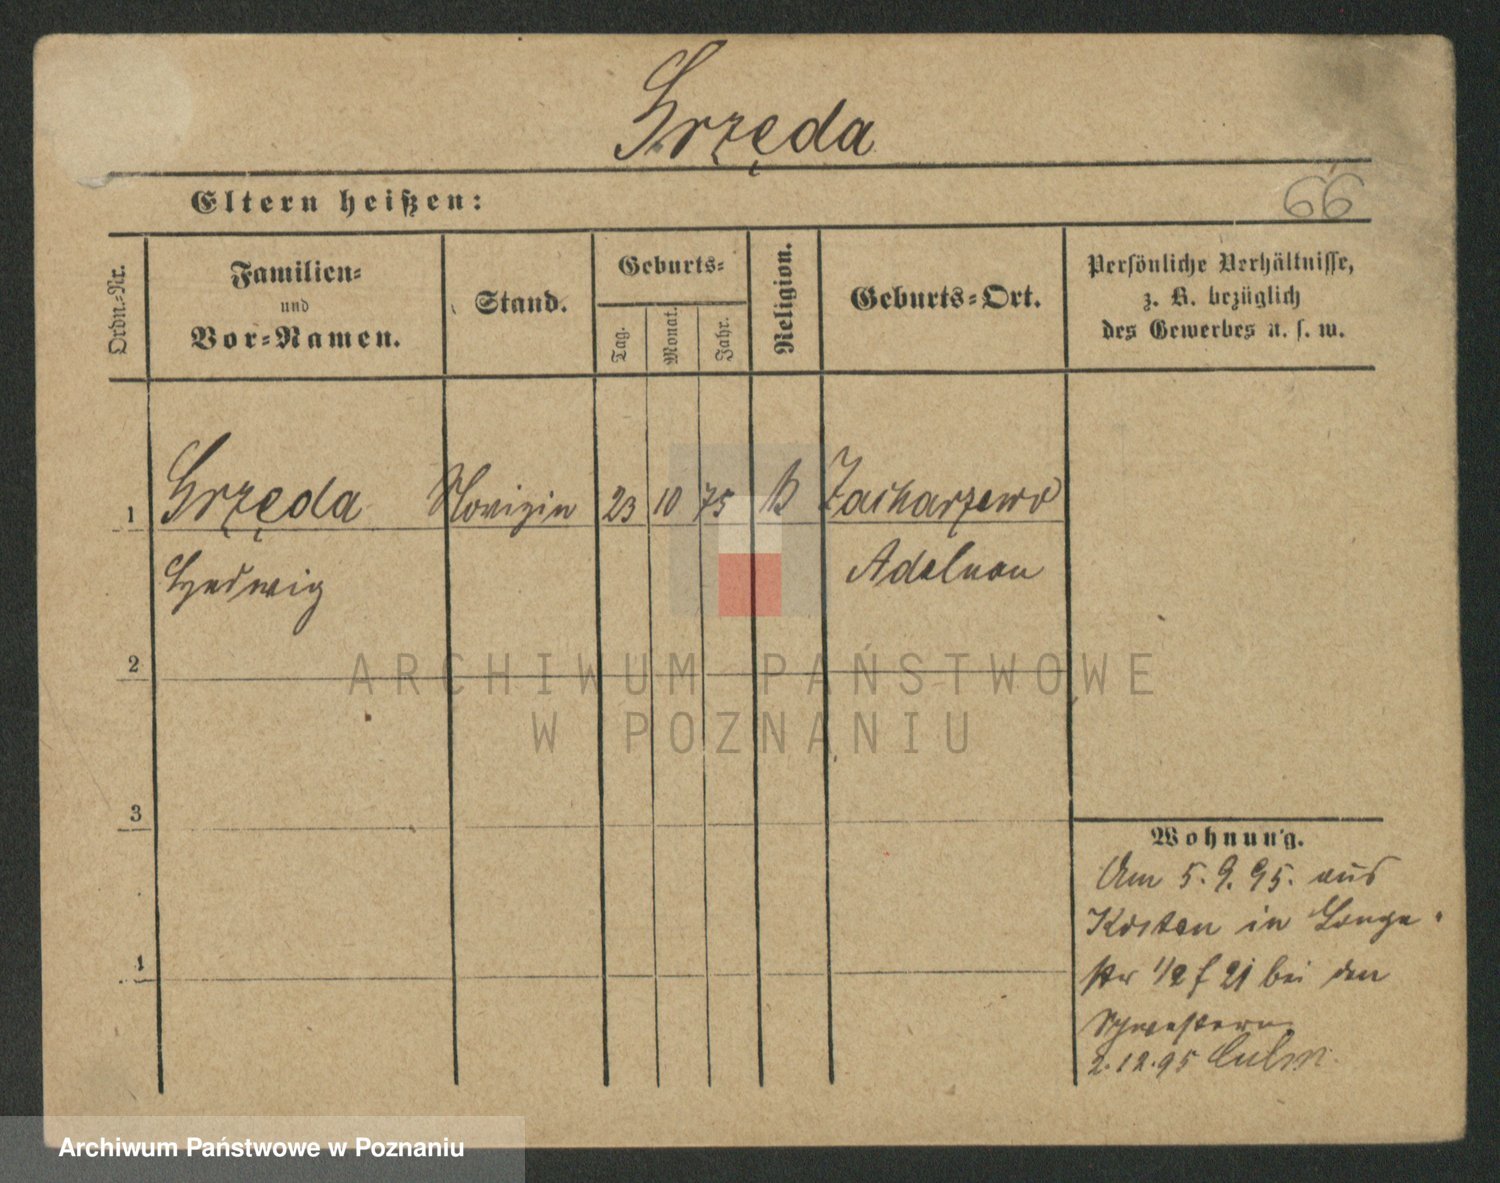 Grzęda
66
Eltern heißen:
Ordn.-Nr.
Familien-
und
Vor-Namen.
Stand.
Geburts-
Tag.
Monat.
Jahr.
Religion.
Geburts-Ort.
Persönliche Verhältnisse,
z. B. bezüglich
des Gewerbes u. s. w.
1 Grzęda Novizin 23 10 75 k Zacharzewo
Hedwig Adelnau
2
3
Wohnung.
Am 5. 9. 95. aus
Kosten in Lange-
str 1/2 f 21 bei den
Schwestern
2.12.95 Culm.
ARCHIWUM PAŃSTWOWE
W POZNANIU
Archiwum Państwowe w Poznaniu